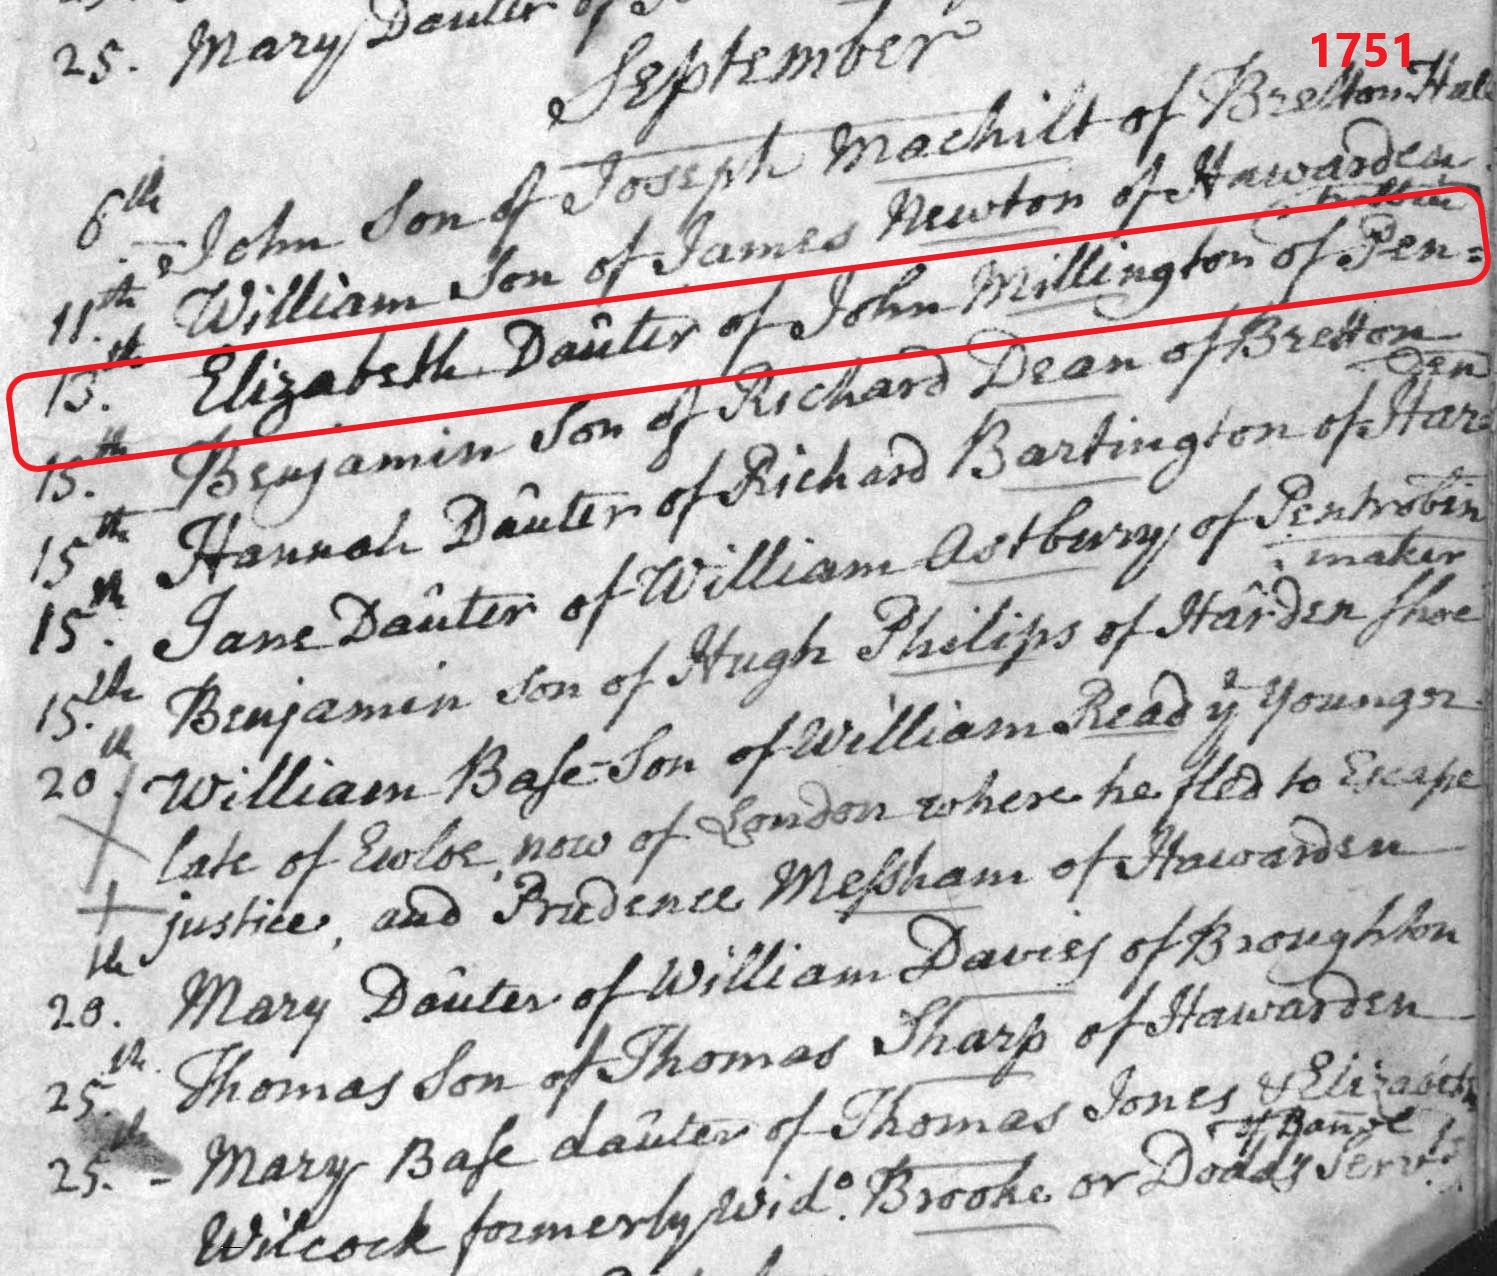 25. Mary Dauter of
September
1751
6th John Son of Joseph Machilt of Bretton Hall
11th William Son of James Newton of Hawarden
trobin
13.th Elizabeth Daûter of John Millington of Pen=
15.th Benjamin Son of Richard Dean of Bretton
den
15th Hannah Daûter of Richard Bartington of Har=
15.th Jane Daûter of William Astbury of Pentrobin
maker
15.th Benjamin son of Hugh Philips of Hârden shoe
20.th William Base-Son of William Read ye Younger
late of Ewloe, now of London where he fled to Escape
justice, and Prudence Messham of Hawarden
20.th Mary Daûter of William Davies of Broughton
25.th Thomas Son of Thomas Sharp of Hawarden
25.th - Mary Base daûter of Thomas Jones & Elizabeth
of Bannel
Wilcock formerly Wido. Brooke or Dodd's Servt.